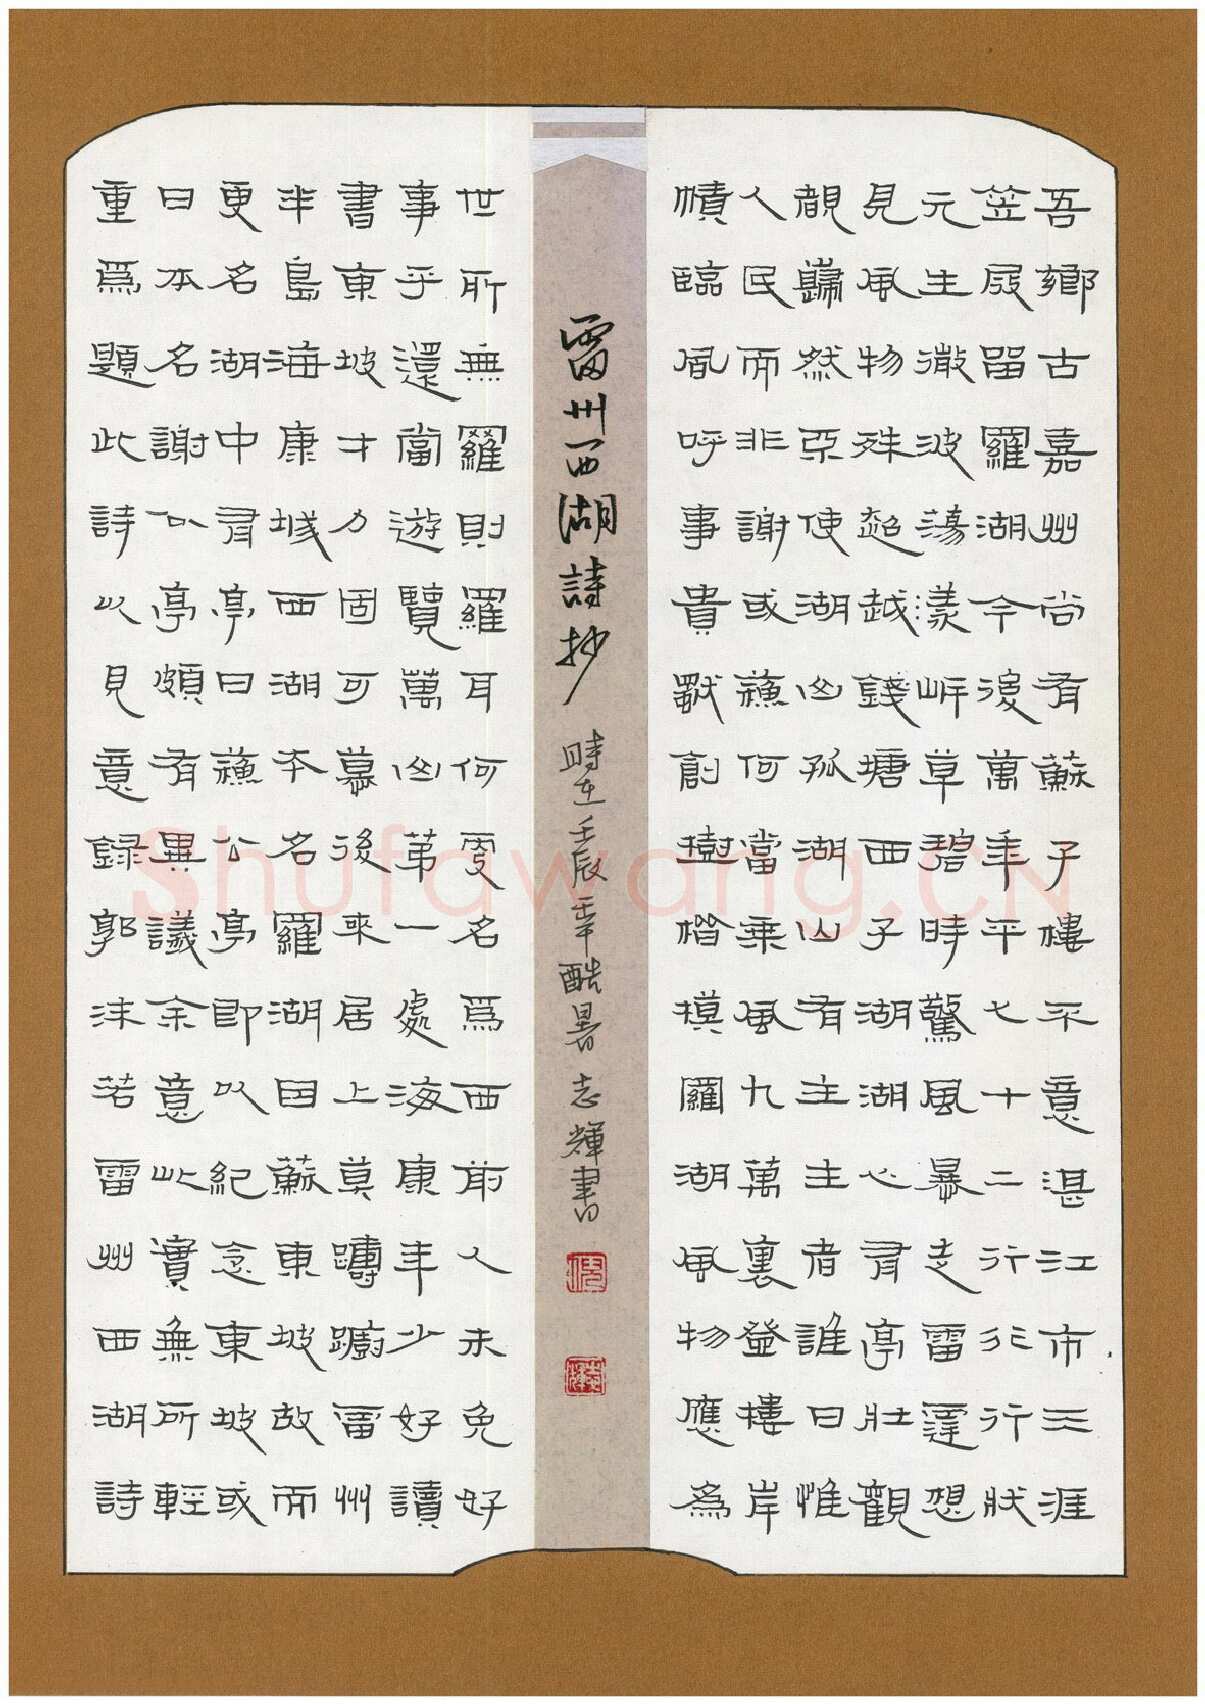 吾鄉古嘉州尚有蘇子樓不意湛江市三涯
笠屐留羅湖今後萬年平七十二行行行狀
元生澈波蕩漾岍草碧時驚風暴走雷霆想
見風物殊超越錢塘西子湖湖心有亭壯觀
覩歸然亞使湖山孤湖山有主主者誰曰惟
人民而非謝或蘇何當乘風九萬裏登樓岸
幘臨風呼事貴獸創樹楷模羅湖風物應為
雷州西湖詩抄 時在壬辰年酷暑志輝書
世所無羅則羅耳何更名為西前人未免好
事乎還當遊覽萬山第一處海康年少好讀
書東坡才力固可慕後來居上莫躊躕雷州
半島海康城西湖本名羅湖因蘇東坡故而
更名湖中有亭曰蘇公亭即以紀念東坡或
曰本名謝公亭頗有異議余意此實無所輕
重為題此詩以見意録郭沫若雷州西湖詩
志輝
Shufawang.CN